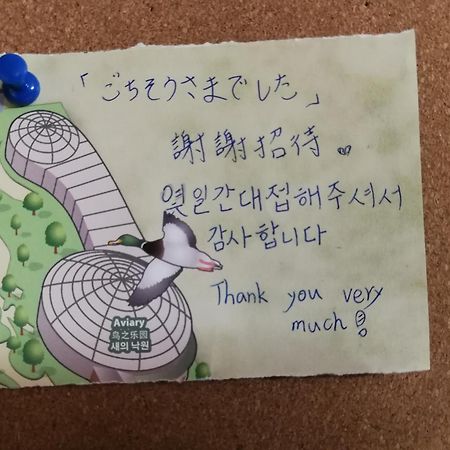 「ごちそうさまでした」
謝謝招待。
몇일간대접해주셔서
감사합니다
Thank you very
much!
Aviary
鸟之乐园
새의 낙원